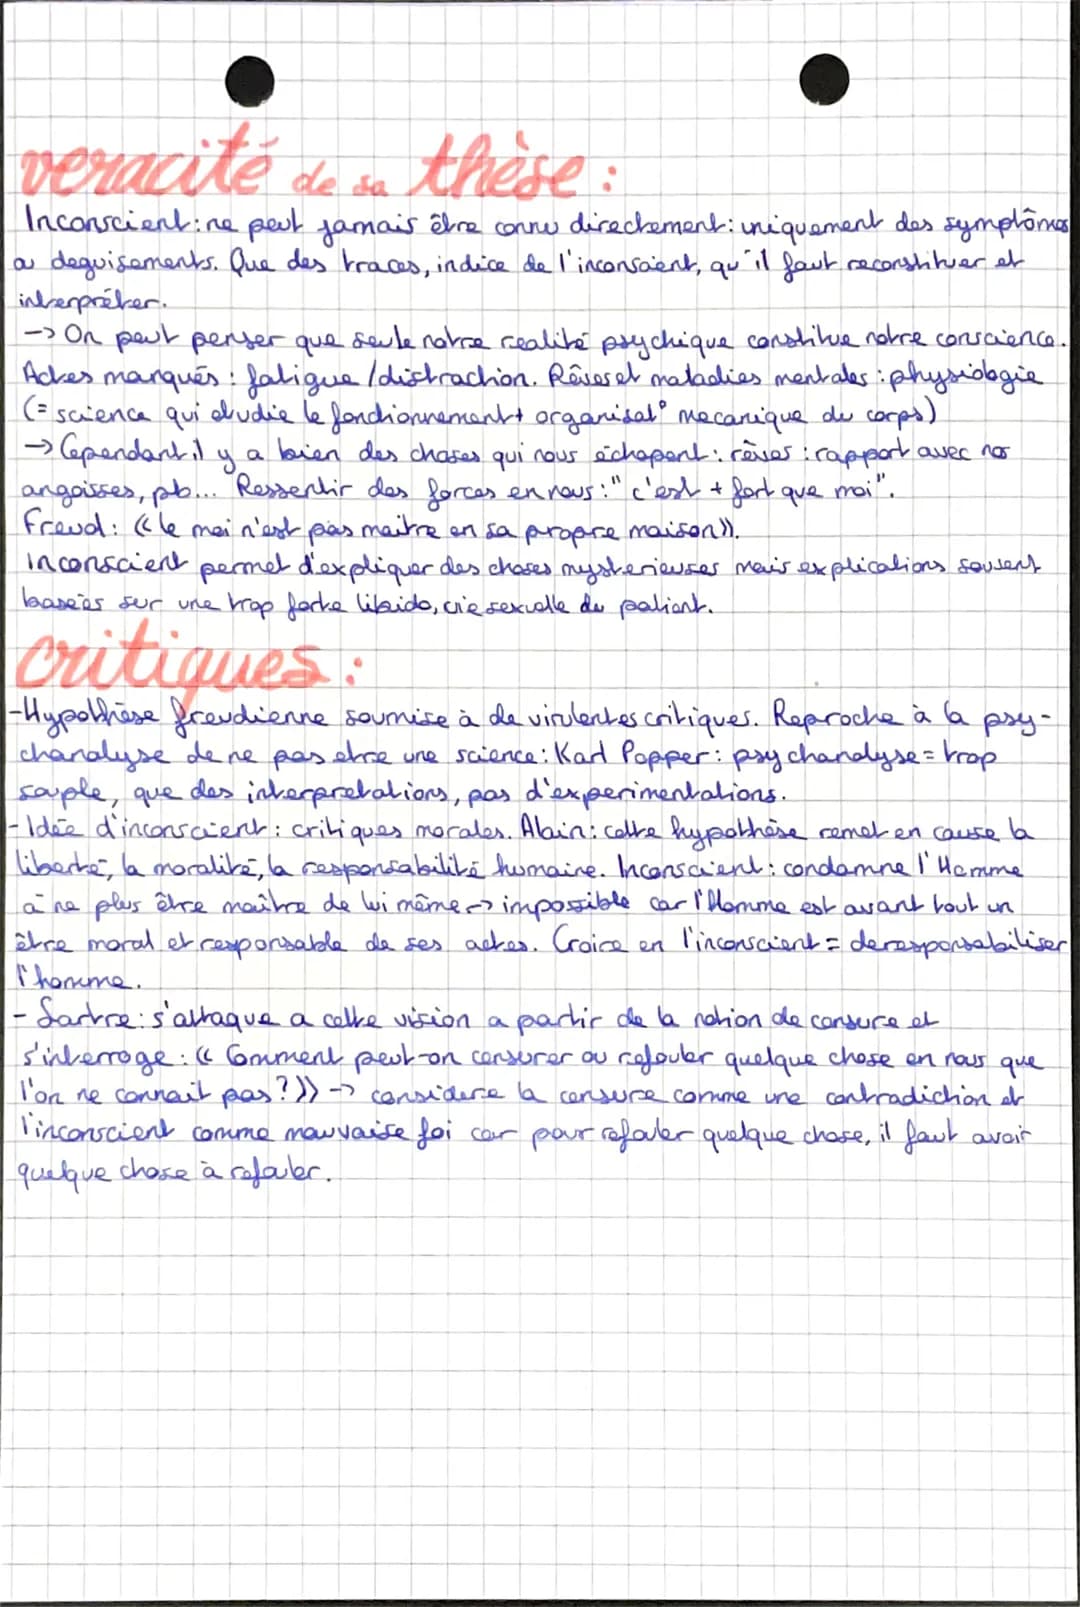 veracité de sa thèse :
Inconscient: ne peut jamais être connu directement: uniquement des symptômes
a deguisements. Que des traces, indice de l'inconsaient, qu'il faut reconstituer et
interpréter.
-> On peut penser que seule notre realité psychique constitue notre conscience.
Actes manqués : fatigue/distraction. Rêves et maladies mentales : physiologie
(= science qui étudie le fonctionnement + organisat° mecanique du corps)
-> Cependant il y a bien des choses qui nous échapent : rêves : rapport avec nos
angoisses, pb... Ressentir des forces en nous : "c'est + fort que moi".
Freud : « le moi n'est pas maitre en sa propre maison ».
Inconscient permet d'expliquer des choses mysterieuses mais explications souvent
basées sur une trop forte libido, vie sexuelle du patient.
critiques :
-Hypothèse freudienne soumise à de virulentes critiques. Reproche à la psy-
chanalyse de ne pas etre une science : Karl Popper : psychanalyse = trop
souple, que des interpretations, pas d'experimentations.
- Idée d'inconscient : critiques morales. Alain : cette hypothèse remet en cause la
liberté, la moralité, la responsabilité humaine. Inconscient : condamne l'Homme
à ne plus être maître de lui même -> impossible car l'Homme est avant tout un
être moral et responsable de ses actes. Croire en l'inconscient = deresponsabiliser
l'homme.
- Sartre : s'attaque a cette vision a partir de la notion de censure et
s'interroge : « Comment peut-on censurer ou refouler quelque chose en nous que
l'on ne connait pas ? » -> considere la censure comme une contradiction et
l'inconscient comme mauvaise foi car pour refouler quelque chose, il faut avoir
quelque chose à refouler.